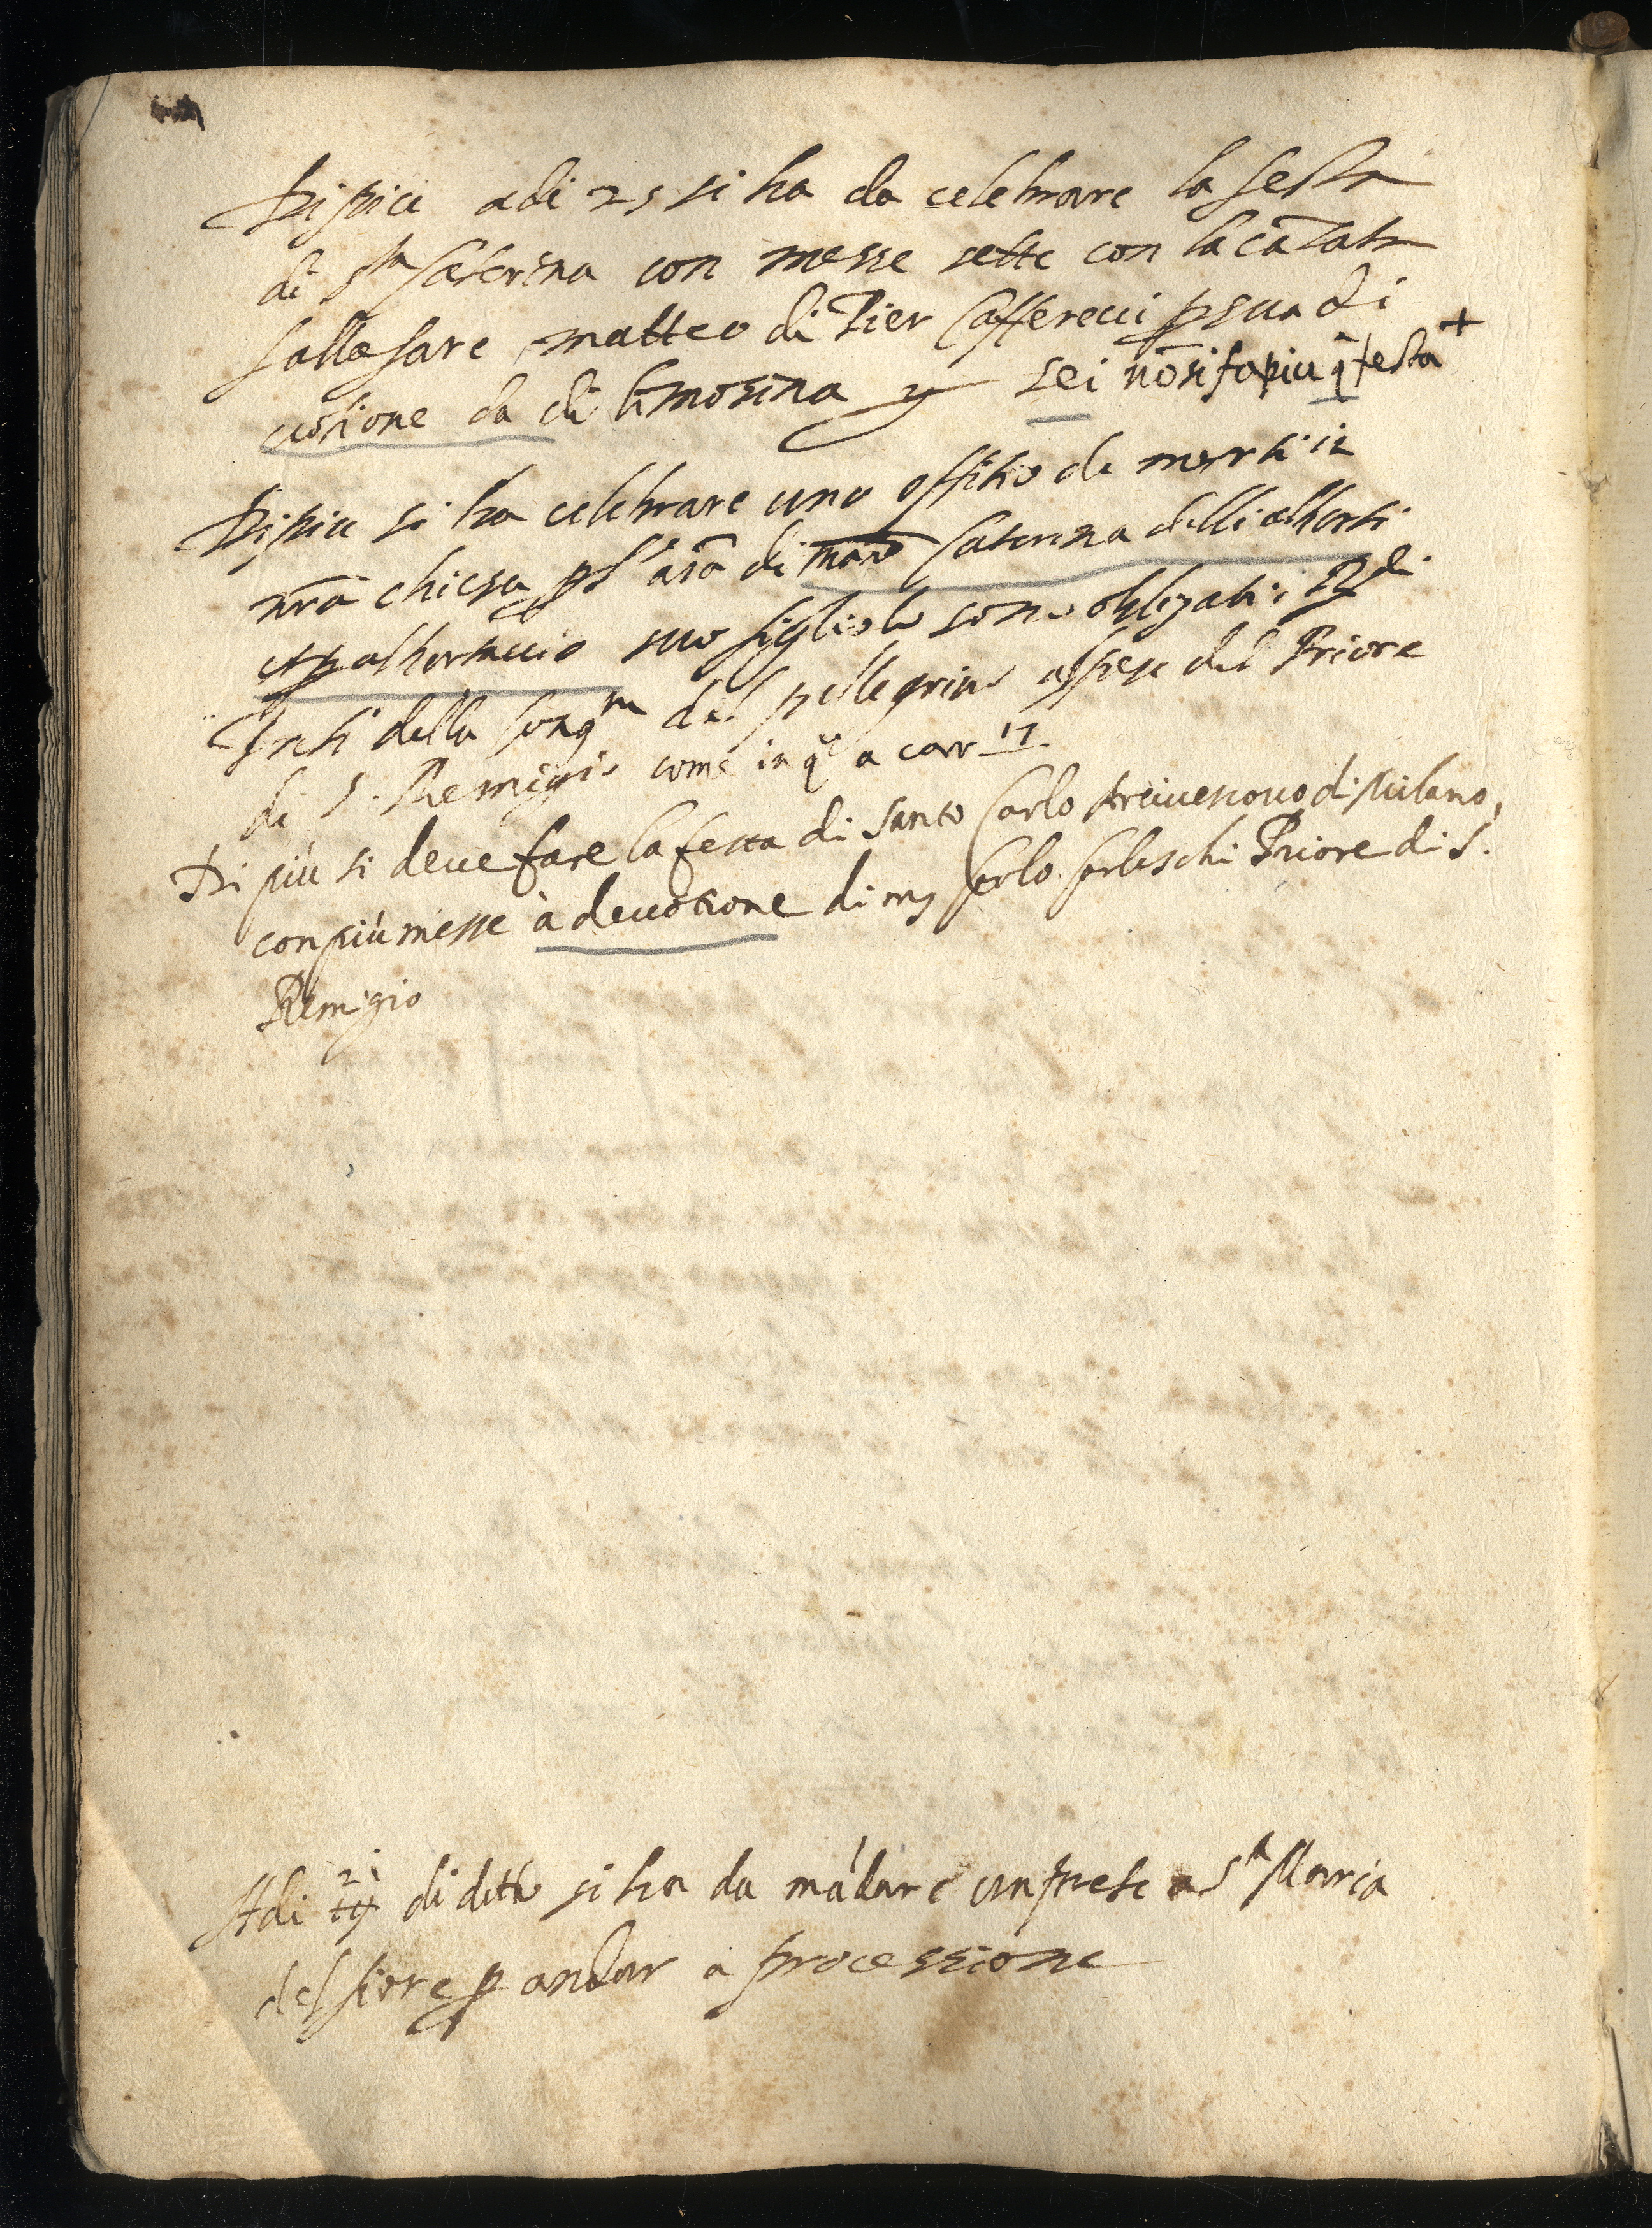 Di piu adi 25 si ha da celebrare la festa
di Sta Caterina con messe sette con la cātata
falla fare matteo di Pier Caffereci p sua di
uotione da di limosina sei nō si fa piu q̄ festa +
Di piu si ha celebrare uno offitio de morti in
nr̄a chiesa p l'aīa di mad Caterina delli alberti
et p albertaccio suo figliolo sono obligati i
Preti della Congne del pellegrino a spese del Priore
di S. Remigio come in qo a carr 17
Di più si deue fare la festa di Santo Carlo Arciuescouo di Milano,
con più messe à deuotione di mr Carlo Carleschi Priore di S.
Remigio
Adi 21 di detto si ha da mādare un prete a Sa Maria
del fiore p andar a processione